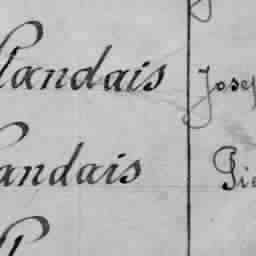 landais Josep
andais Pie